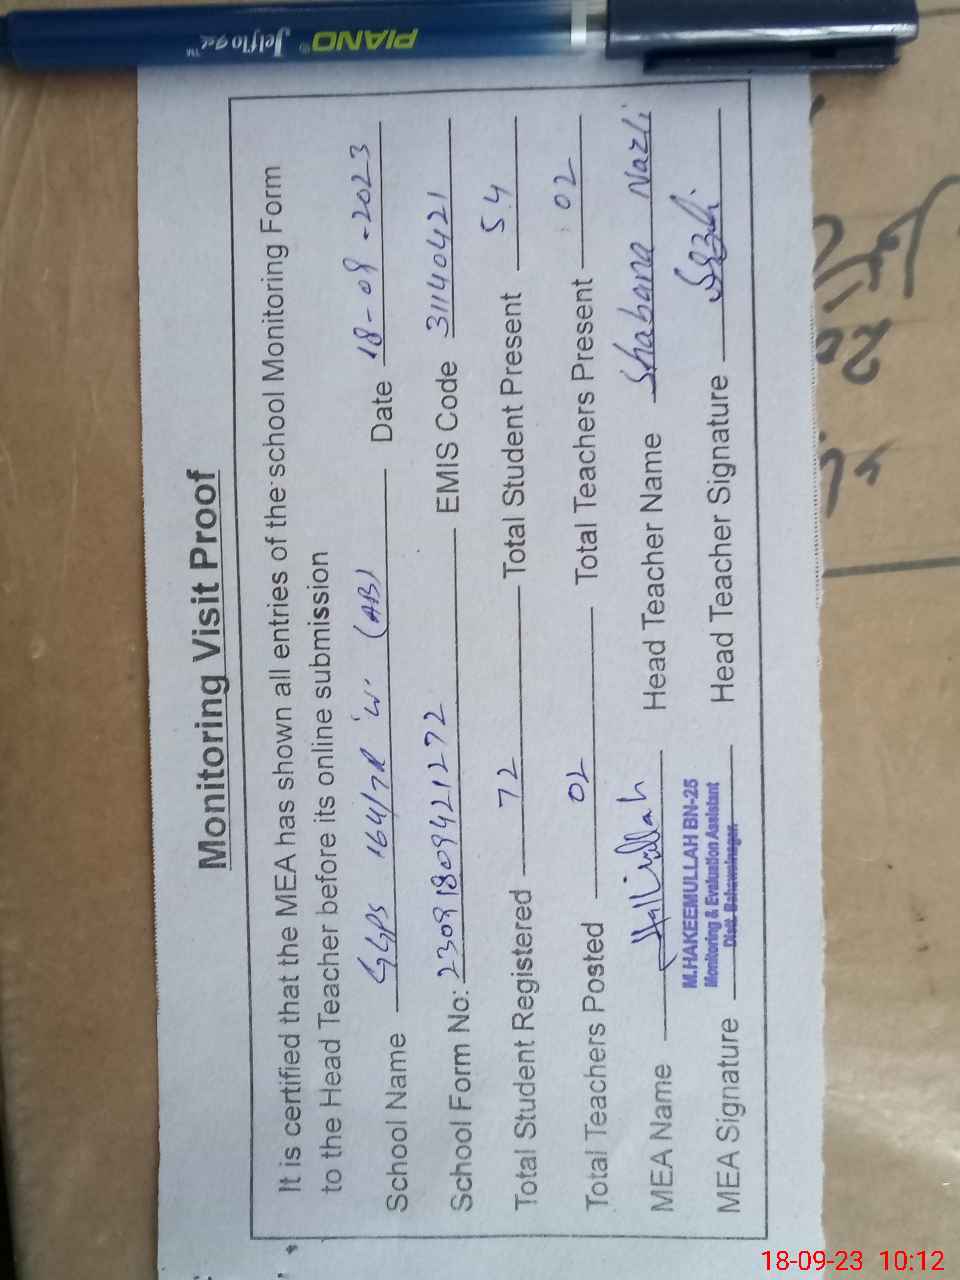 PIANO® Jelflo gel™
Monitoring Visit Proof
It is certified that the MEA has shown all entries of the school Monitoring Form
to the Head Teacher before its online submission
School Name GGPS 164/7R 'W' (AB) Date 18-09-2023
School Form No: 23091809421272 EMIS Code 31140421
Total Student Registered 72 Total Student Present 54
Total Teachers Posted 02 Total Teachers Present 02
MEA Name Head Teacher Name Shabana Nazli
M.HAKEEMULLAH BN-25
Monitoring & Evaluation Assistant
Distt. Bahawalnagar.
MEA Signature Head Teacher Signature
18-09-23 10:12